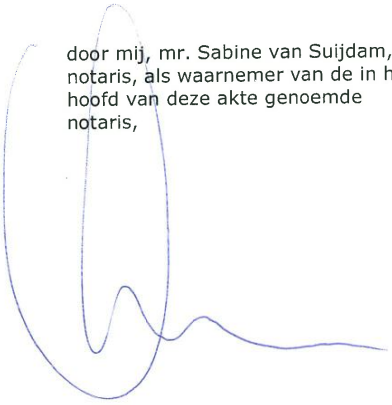 door mij, mr. Sabine van Suijdam,
notaris, als waarnemer van de in h
hoofd van deze akte genoemde
notaris,